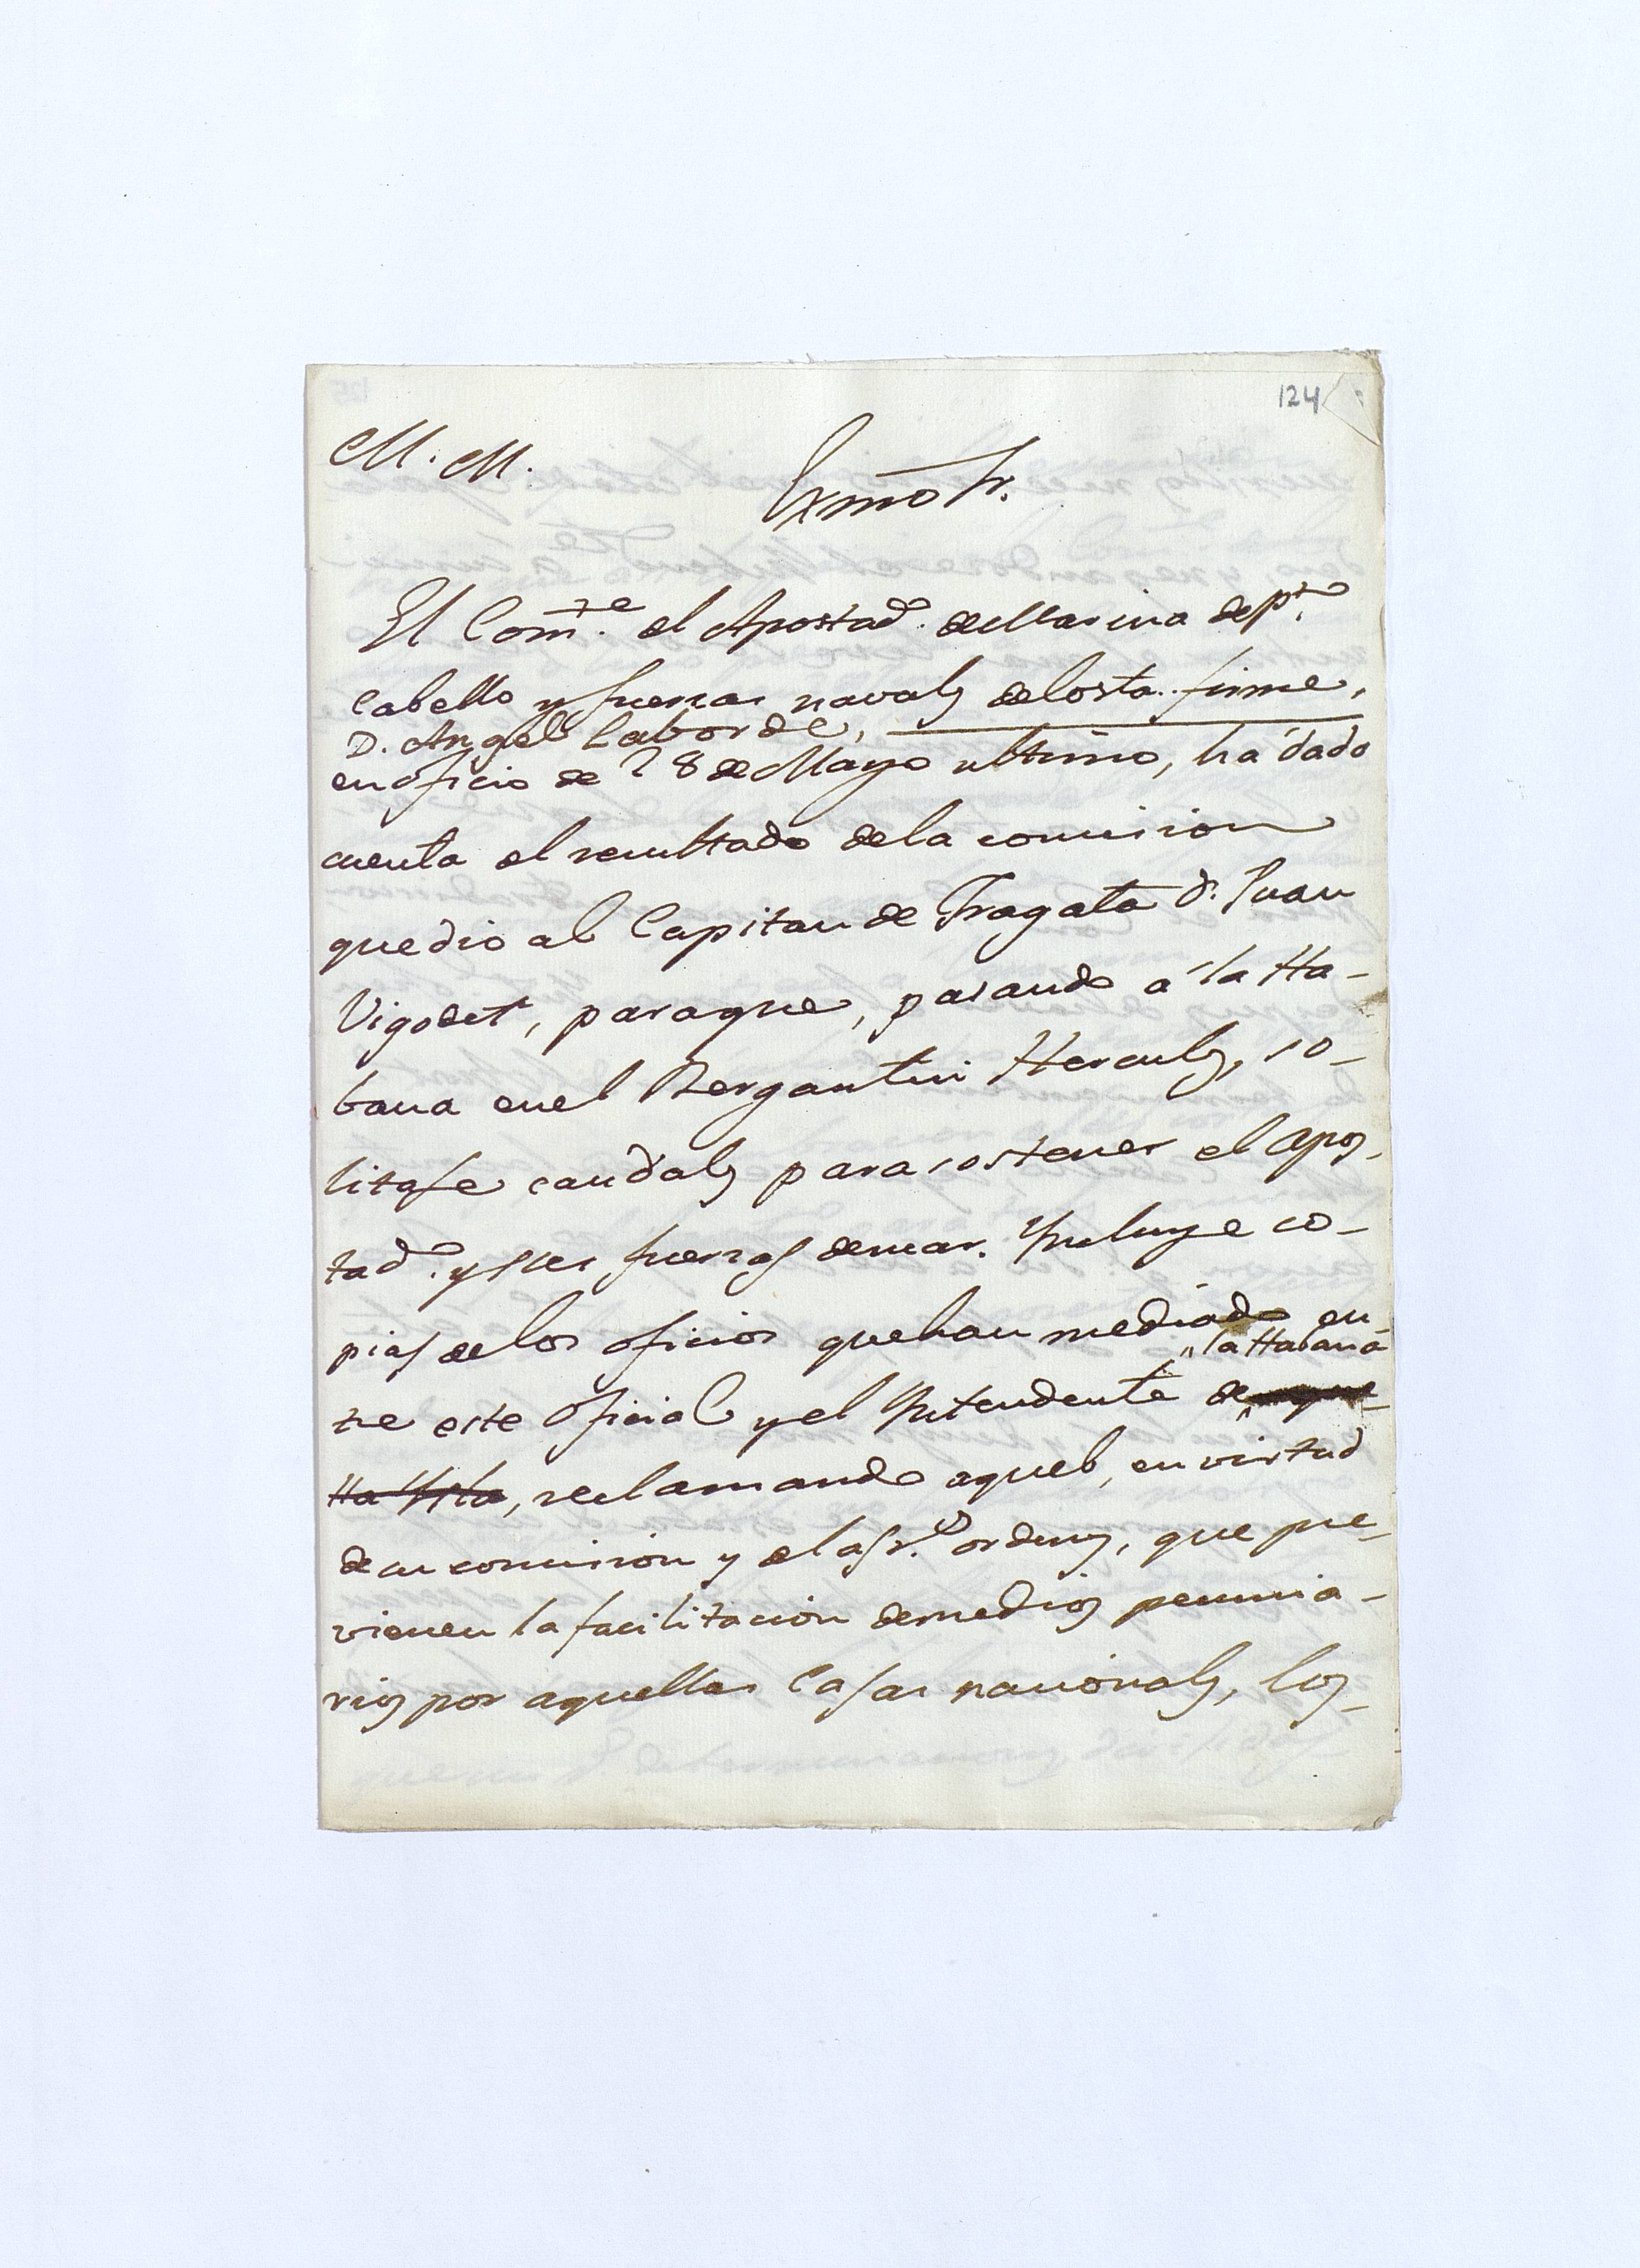 124
M. M.
Exmo Sr.
El Comte. del Apostado. de Marina de Pto.
Cabello y fuerzas navales de Costa-firme,
D. Angel Laborde,
en oficio de 28 de Mayo ultimo, ha dado
cuenta del resultado de la comision
que dio al Capitan de Fragata D. Juan
Vigodet, para que, pasando á la Ha-
bana en el Bergantin Hercules, so-
litase caudales para sostener el apos-
tado. y sus fuerzas de mar. Incluye co-
pias de los oficios que han mediado en-
la Habana
tre este Oficial y el Intendente de aque-
lla Isla, reclamando aquel, en virtud
de su comision y de las rs. ordenes, que pre-
vienen la facilitacion de medios pecunia-
rios por aquellas Casas nacionales, los